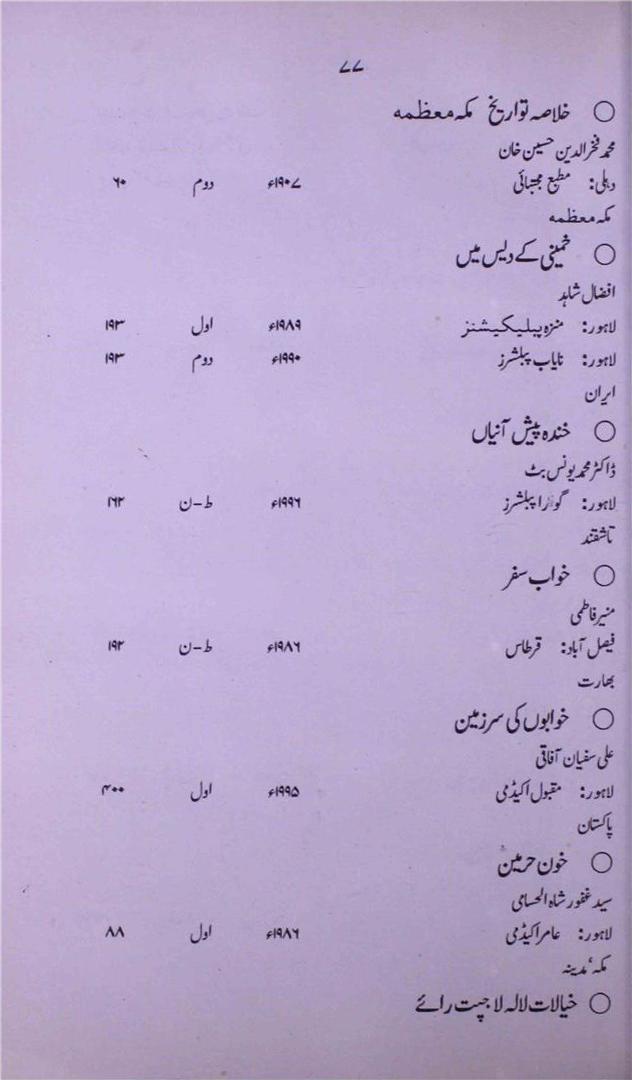 ۷۷
○ خلاصہ تواریخ مکہ معظمہ
محمد فخر الدین حسین خان
دہلی: مطبع مجتبائی ۱۹۰۷ء دوم ۶۰
مکہ معظمہ
○ خمینی کے دیس میں
افضال شاہد
لاہور: منزہ پبلیکیشنز ۱۹۸۹ء اول ۱۹۳
لاہور: نایاب پبلشرز ۱۹۹۰ء دوم ۱۹۳
ایران
○ خندہ پیش آنیاں
ڈاکٹر محمد یونس بٹ
لاہور: گورا پبلشرز ۱۹۹۶ء ط-ن ۱۶۲
تاشقند
○ خواب سفر
منیر فاطمی
فیصل آباد: قرطاس ۱۹۸۶ء ط-ن ۱۹۲
بھارت
○ خوابوں کی سرزمین
علی سفیان آفاقی
لاہور: مقبول اکیڈمی ۱۹۹۵ء اول ۴۰۰
پاکستان
○ خون حرمین
سید غفور شاہ الحسامی
لاہور: عامر اکیڈمی ۱۹۸۶ء اول ۸۸
مکہ‘ مدینہ
○ خیالات لالہ لاجپت رائے